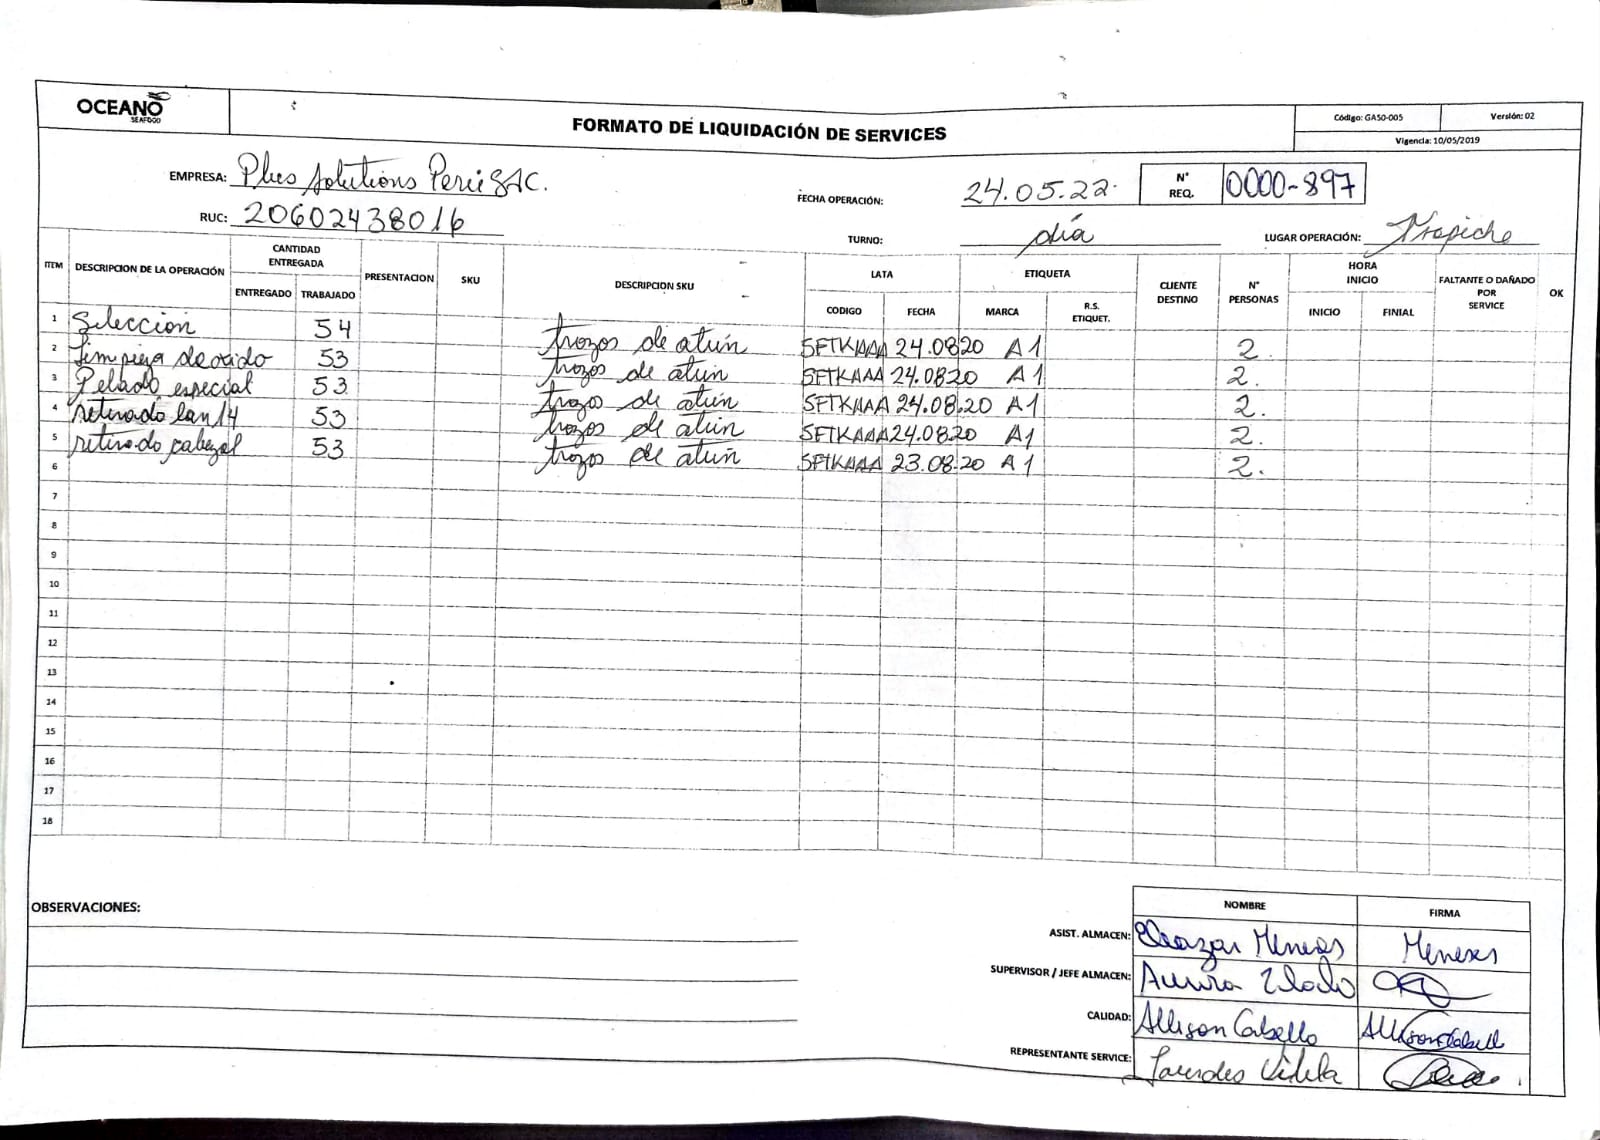 OCEANO
SEAFOOD
FORMATO DE LIQUIDACIÓN DE SERVICES
Código: GA50-005 Versión: 02
Vigencia: 10/05/2019
EMPRESA: Plus Solutions Perú SAC.
FECHA OPERACIÓN: 24.05.22.
N° REQ. 0000-897
RUC: 20602438016
TURNO: día
LUGAR OPERACIÓN: Trapiche
ITEM DESCRIPCION DE LA OPERACIÓN CANTIDAD ENTREGADA PRESENTACION SKU DESCRIPCION SKU LATA ETIQUETA CLIENTE DESTINO N° PERSONAS HORA INICIO FALTANTE O DAÑADO POR SERVICE OK
ENTREGADO TRABAJADO CODIGO FECHA MARCA R.S. ETIQUET. INICIO FINIAL
1 Selección 54 trozos de atún SFTKAAA 24.0820 A1 2.
2 Limpieza de oxido 53 trozos de atún SFTKAAA 24.0820 A1 2.
3 Pelado especial 53 trozos de atún SFTKAAA 24.08.20 A1 2.
4 retirado lan14 53 trozos de atún SFTKAAA 24.0820 A1 2.
5 retirado cabezal 53 trozos de atún SFTKAAA 23.08.20 A1 2.
6
7
8
9
10
11
12
13
14
15
16
17
18
OBSERVACIONES:
NOMBRE FIRMA
ASIST. ALMACEN: Eleazar Meneses Meneses
SUPERVISOR / JEFE ALMACEN:
CALIDAD: Allison Cabello Allison Cabell
REPRESENTANTE SERVICE: Lourdes Vilela